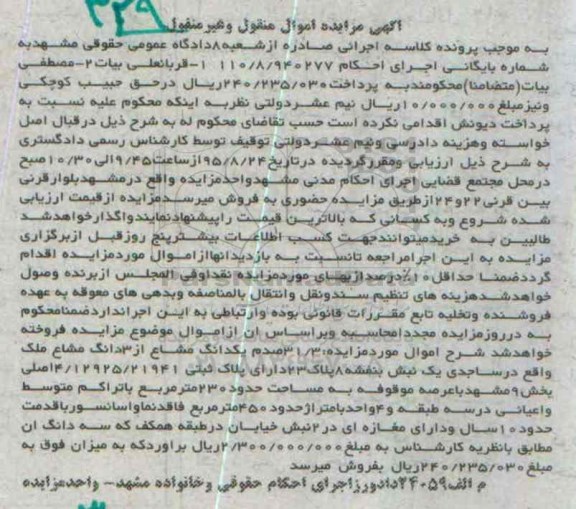 ۳۳۹
آگهی مزایده اموال منقول وغیرمنقول
به موجب پرونده کلاسه اجرائی صادره ازشعبه۸دادگاه عمومی حقوقی مشهدبه
شماره بایگانی اجرای احکام ۱۱۰/۸/۹۴۰۲۷۷ ۱-قربانعلی بیات۲-مصطفی
بیات(متضامنا)محکومندبه پرداخت۲۴۰/۲۳۵/۰۳۰ریال درحق حبیب کوچکی
ونیزمبلغ۱۰/۰۰۰/۰۰۰ریال نیم عشردولتی نظربه اینکه محکوم علیه نسبت به
پرداخت دیونش اقدامی نکرده است حسب تقاضای محکوم له به شرح ذیل درقبال اصل
خواسته وهزینه دادرسی ونیم عشردولتی توقیف توسط کارشناس رسمی دادگستری
به شرح ذیل ارزیابی ومقررگردیده درتاریخ۹۵/۸/۲۴ازساعت۹/۴۵الی۱۰/۳۰صبح
درمحل مجتمع قضایی اجرای احکام مدنی مشهدواحدمزایده واقع درمشهدبلوارقرنی
بین قرنی۲۲و۲۴ازطریق مزایده حضوری به فروش میرسدمزایده ازقیمت ارزیابی
شده شروع وبه کسانی که بالاترین قیمت راپیشنهادنمایندواگذارخواهدشد
طالبین به خریدمیتوانندجهت کسب اطلاعات بیشترپنج روزقبل ازبرگزاری
مزایده به این اجرامراجعه تانسبت به بازدیدانهاازاموال موردمزایده اقدام
گرددضمنا حداقل۱۰٪درصدازبهای موردمزایده نقداوفی المجلس ازبرنده وصول
خواهدشدهزینه های تنظیم سندونقل وانتقال بالمناصفه وبدهی های معوقه به عهده
فروشنده وتخلیه تابع مقررات قانونی بوده وارتباطی به این اجرانداردضمنامحکوم
به درروزمزایده مجددامحاسبه وبراساس ان ازاموال موضوع مزایده فروخته
خواهدشد شرح اموال موردمزایده:۳۱/۳صدم یکدانگ مشاع از۳دانگ مشاع ملک
واقع درساجدی یک نبش بنفشه۸پلاک۲۳دارای پلاک ثبتی ۴/۱۲۹۲۵/۲۱۹۴۱اصلی
بخش۹مشهدباعرصه موقوفه به مساحت حدود۲۳۰مترمربع باتراکم متوسط
واعیانی درسه طبقه و۴واحدبامتراژحدود۴۵۰مترمربع فاقدنماواسانسورباقدمت
حدود۱۰سال ودارای مغازه ای در۲نبش خیابان درطبقه همکف که سه دانگ ان
مطابق بانظریه کارشناس به مبلغ۲/۳۰۰/۰۰۰/۰۰۰ریال براوردکه به میزان فوق به
مبلغ۲۴۰/۲۳۵/۰۳۰ریال بفروش میرسد
م الف۲۴۰۵۹دادورزاجرای احکام حقوقی وخانواده مشهد- واحدمزایده